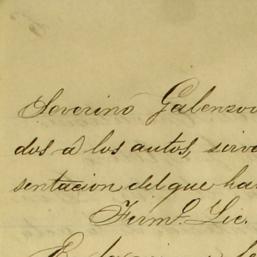 Severino Galenzow
dos a los autos, sirve
sentacion del que ha
Firmo. Lic.